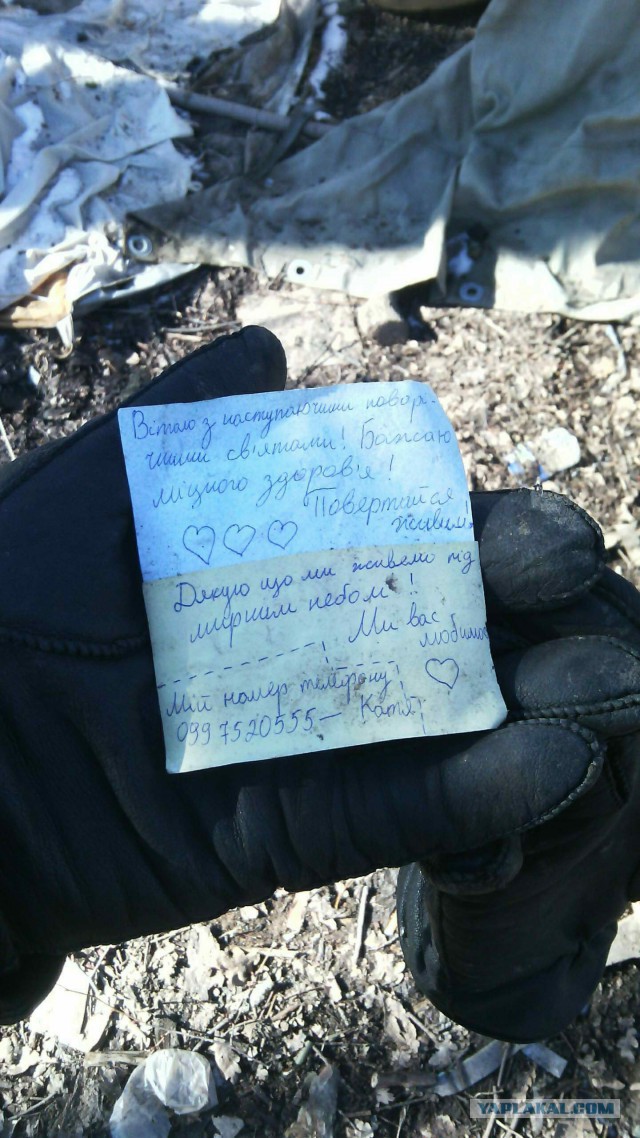 Вітаю з наступаючими новоріч-
чними святами! Бажаю
міцного здоров'я!
Повертайся
живим!
Дякую що ми живемо під
мирним небом!
Ми вас
любимо
Мій номер телефону
099 7520555 – Катя
YAPLAKAL.COM